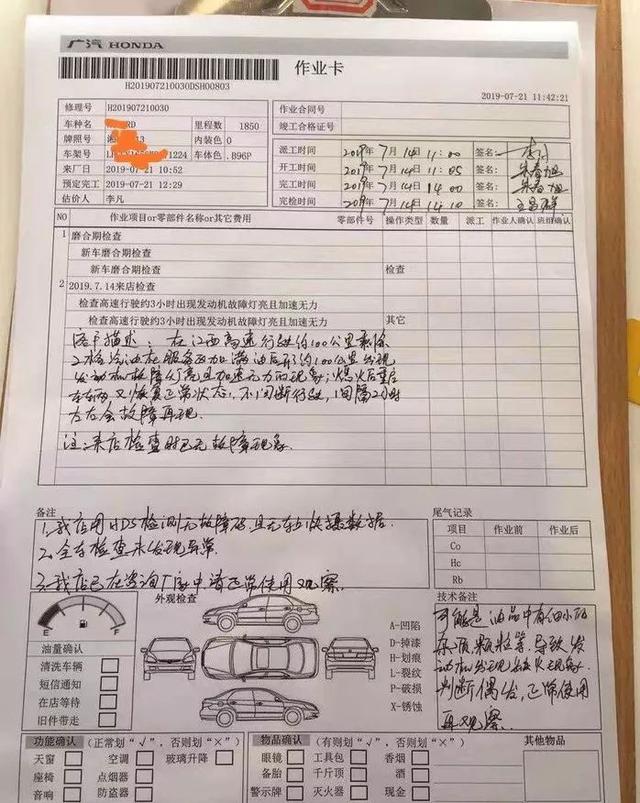 广汽 HONDA
作业卡
H201907210030DSH00803
2019-07-21 11:42:21
修理号 H201907210030
作业合同号
竣工合格证号
车种名 RD 里程数 1850
牌照号 湘 13 内装色 0
车架号 1224 车体色 .B96P
来厂日 2019-07-21 10:52
预定完工 2019-07-21 12:29
估价人 李凡
派工时间 2019年7月14日 11:00 签名:
开工时间 2019年7月14日 11:05 签名:
完工时间 2019年7月14日 14:00 签名:
完检时间 2019年7月14日 14:10 签名:
NO 作业项目or零部件名称or其它费用 零部件号 操作类型 数量 派工 作业人确认 班组确认
1 磨合期检查
新车磨合期检查
新车磨合期检查 检查
2 2019.7.14来店检查
检查高速行驶约3小时出现发动机故障灯亮且加速无力
检查高速行驶约3小时出现发动机故障灯亮且加速无力 其它
客户描述：在江西高速行驶约100公里剩余
2格汽油在服务区加满油后行约100公里发现
发动机故障灯亮且加速无力的现象，熄火后重启
又恢复正常状态，不间断行驶，间隔2小时
左右会故障再现.
注：来店检查时已无故障现象
备注
1.我店用HDS检测无故障码，且无车快摄数据.
2.全车检查未发现异常.
3.我店已在咨询厂家申请正常使用观察.
尾气记录
项目 作业前 作业后
Co
Hc
Rb
外观检查
E F
油量确认
清洗车辆
短信通知
在店等待
旧件带走
A-凹陷
D-掉漆
H-划痕
L-裂纹
P-破损
X-锈蚀
技术备注
可能是油品中有细小的
杂质颗粒等.导致发
动机出现缺火现象.
判断偶发，正常使用
再观察.
功能确认 (正常划"√"，否则划"×")
天窗 空调 玻璃升降
座椅 点烟器
音响 防盗器
物品确认 (有则划"√"，否则划"×")
眼镜 工具包 香烟
备胎 千斤顶 酒
警示牌 灭火器 现金
其他物品